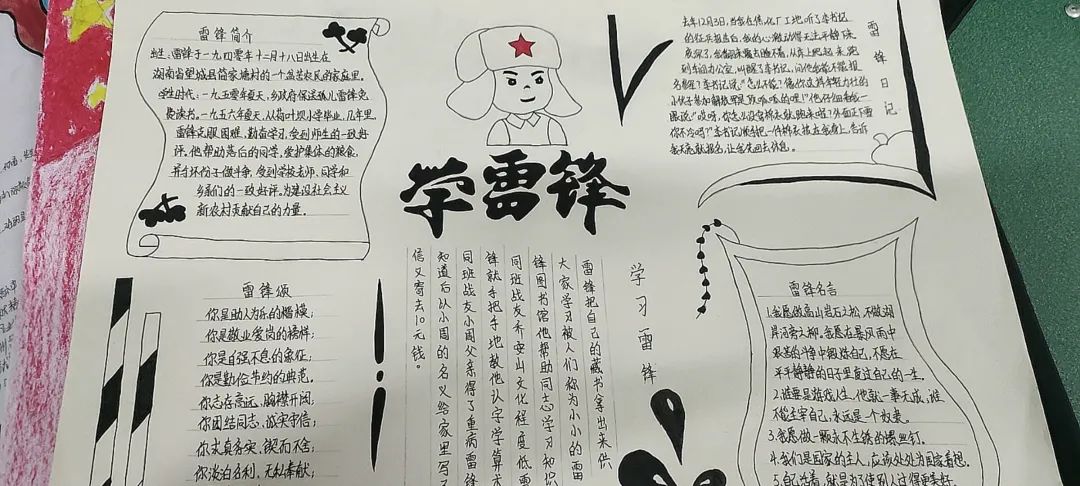 雷锋简介
出生:雷锋于一九四零年十二月十八日出生在
湖南省望城县简家塘村的一个贫苦农民的家庭里。
学生时代:一九五零年夏天,乡政府保送孤儿雷锋免
费读书。一九五六年夏天,从荷叶坝小学毕业,几年里
雷锋克服困难,勤奋学习,受到师生的一致好
评。他帮助落后的同学,爱护集体的粮食,
并与坏份子做斗争,受到学校老师、同学和
乡亲们的一致好评。为建设社会主义
新农村贡献自己的力量。
学雷锋
雷锋日记
去年12月3日,当我在焦化厂工地听了李书记
的征兵报告后,我的心激动得无法平静下来
夜深了,我翻来覆去睡不着,从床上爬起来,跑
到车间办公室,叫醒了李书记,问他我能不能报
名参军?李书记说:"怎么不能?像你这样身强力壮的
小伙子参加解放军是顶呱呱的哩!"他仔细看我一
眼说:"哎呀,你怎么没穿棉衣就跑来啦?外面正下雪
你不冷吗?"李书记顺手把一件棉衣披在我身上,告诉
我天亮就报名,让我先回去休息。
雷锋颂
你是助人为乐的楷模;
你是敬业爱岗的榜样;
你是自强不息的象征;
你是勤俭节约的典范。
你志存高远,胸襟开阔;
你团结同志,诚实守信;
你求真务实,锲而不舍;
你淡泊名利,无私奉献;
学习雷锋
雷锋把自己的藏书拿出来供
大家学习被人们称为小小的雷
锋图书馆他帮助同志学习知识
同班战友乔安山文化程度低雷
锋就手把手地教他认字学算术
同班战友小周父亲得了重病雷锋
知道后以小周的名义给家里写了
信又寄去10元钱。
雷锋名言
1.我愿做高山岩石之松,不做湖
岸河旁之柳。我愿在暴风雨中
艰苦的斗争中锻炼自己,不愿在
平平静静的日子里度过自己的一生。
2.谁要是游戏人生,他就一事无成,谁
不能主宰自己,永远是一个奴隶。
3.我愿做一颗永不生锈的螺丝钉。
4.我们是国家的主人,应该处处为国家着想。
5.自己活着,就是为了使别人过得更美好。